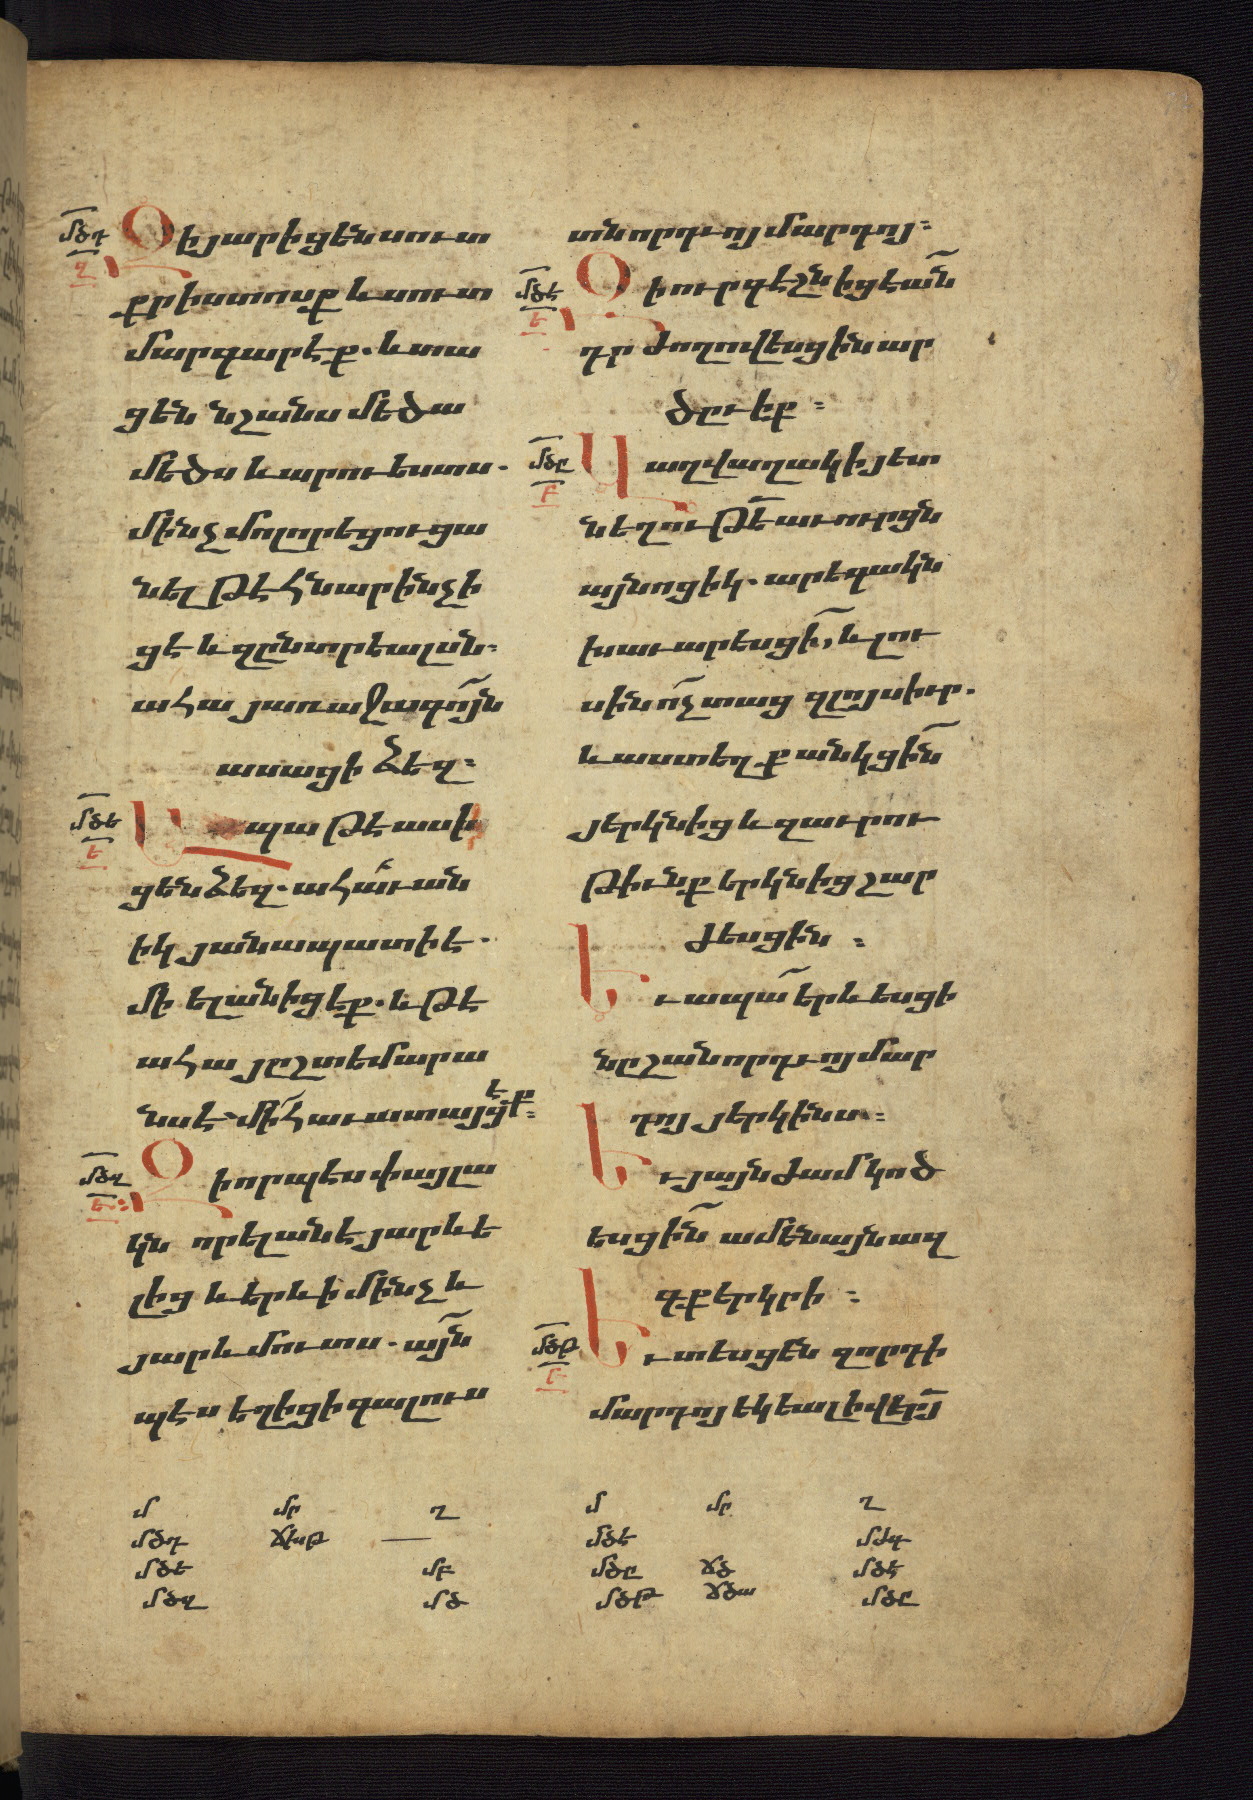 մծդ
Զ
Զի յարիցեն սուտ
քրիստոսք և սուտ
մարգարէք. և տա
ցեն նշանս մեծա
մեծս և արուեստս.
մինչ մոլորեցուցա
նել թէ հնար ինչ ի
ցէ և զընտրեալսն։
ահա յառաջագոյն
ասացի ձեզ։
մծե
Ե
Ապա թէ ասի
ցեն ձեզ. ահաւան
իկ յանապատի է.
մի ելանիցէք. և թէ
ահա յըշտեմարա
նս է մի հաւատայցէք։
մծզ
Ե
Զի որպես փայլա
կն որ ելանէ յարևե
լից և երևի մինչև
յարևմուտս. այն
պէս եղիցի գալուս
տն որդւոյ մարդոյ։
մծէ
Ե
Զի ուր գէշն իցէ ան
դր ժողովեսցին ար
ծըւիք։
մծը
Բ
Այլ վաղվաղակի յետ
նեղութե աւուրցն
այնոցիկ. արեգակն
խաւարեսցի, և լու
սին ոչ տացէ զլոյս իւր.
և աստեղք անկցին
յերկնից և զաւրու
թիւնք երկնից շար
ժեսցին։
Եւ ապա երևեսցի
նըշան որդւոյ մար
դոյ յերկինս։
Եւ յայնժամ կոծ
եսցին ամենայն ազ
գք երկրի։
մծթ
Բ
Եւ տեսցեն զորդի
մարդոյ եկեալ ի վերայ
մ մր ղ
մծդ ճխթ —
մծե մբ
մծզ մծ
մ մր ղ
մծէ մժգ
մծը ճծ մծէ
մծթ ճծա մծը